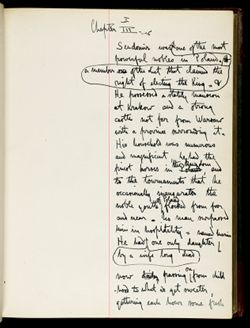 I
Chapter III
Sendomir was one of the most
powerful nobles in Poland,
a member of the Diet that claimed the
right of electing the King
He possessed a stately mansion
at Krakow and a strong
castle not far from Warsaw
with a province surrounding it.
His household was numerous
and magnificent, he had the
finest horses in the kingdom
to the tournaments that he
occasionally inaugurated the
noble youth flocked from far
and near. No man surpassed
him in hospitality
He had one only daughter
by a wife long dead
now passing on from child
hood to what is yet sweeter
gathering each hour some fresh